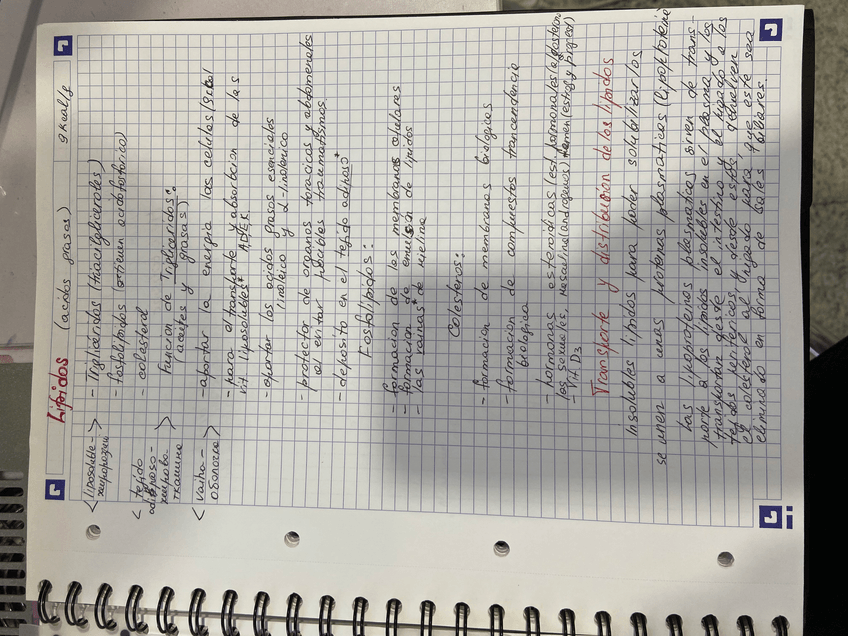 Lípidos (acidos grasos) 9 Kcal/g
- Trigliceridos (triacilgliceroles)
- fosfolipidos (contienen acido fosforico)
- colesterol
<liposoluble- жирораствор>
Funcion de Trigliceridos:
(aceites y grasas)
<tejido adiposo- жировая тканина>
- aportar la energia las celulas
<vaina- оболочка>
- para el transporte y absorbcion de las
vit. liposolubles* ADEK
- aportar los acidos grasos esenciales
linoleico y α-linolenico
- protector de organos toracicos y abdomenales
al evitar posibles traumatismos
- deposito en el tejido adiposo*
Fosfolipidos:
- formacion de las membranas celulares
- formacion de emulsion de lipidos
- las vainas* de mielina
Colesteros:
- formacion de membranas biologicas
- formacion de compuestos trancendencia
biologica
- hormonas esteroidicas (est. hormonales
les sexuales, masculina (androgenos) femen (estrog y progest)
- vit D3
Transporte y distribución de los lipidos
insolubles lipidos para poder solubilizarlos
se unen a unas proteinas plasmaticas (lipoproteina
Las lipoproteinas plasmaticas sirven de trans-
porte a los lipidos insolubles en el plasma y los
transportan desde el intestino y el higado a los
tejidos perifericos, y desde estos devuelven
el colesterol al higado para que este sea
eliminado en forma de sales biliares.